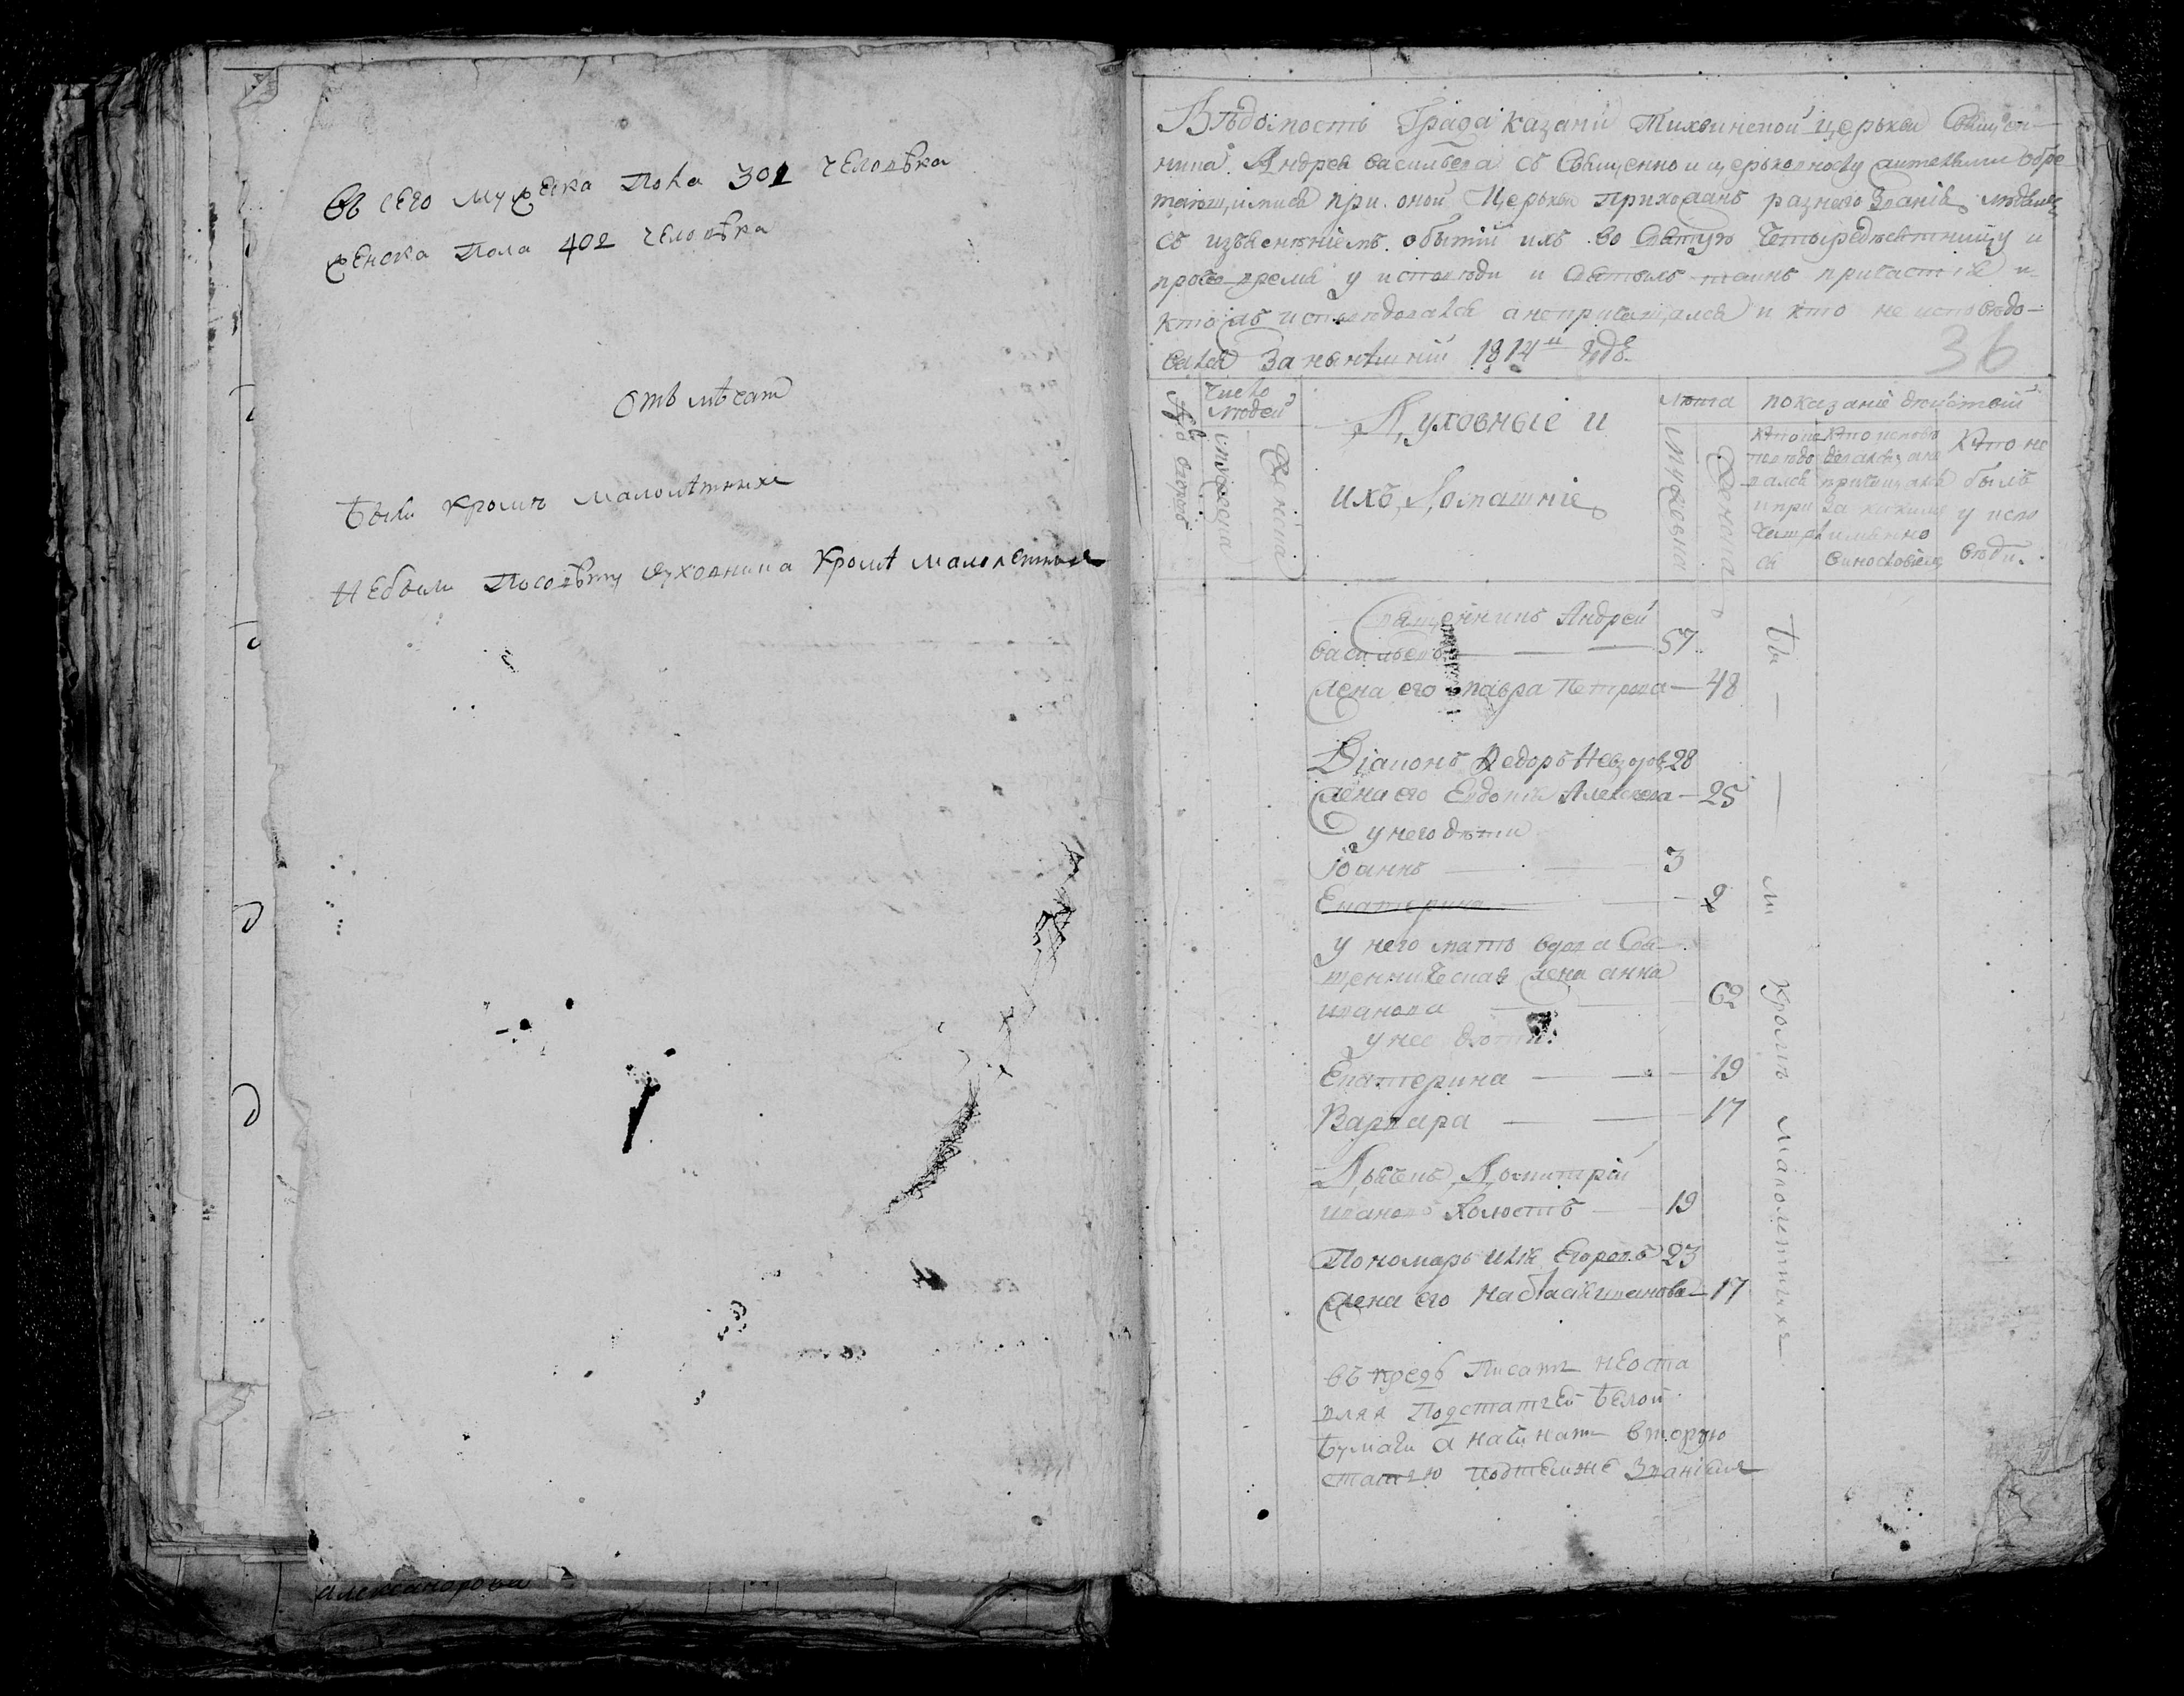 Въ сего мужеска Пола 301 челоdѣка
женска Пола 402 человѣка
Отмѣсат
были кромѣ малолѣтныхъ
Небыли Посовѣту духовника Кромѣ малолетныхъ
александрова
Вѣдомость Града Казани Тихвинской церькви Священ-
ника Андрея васильева съ Священно и церьковнослужительми обре-
тающимися при оной Церькви Приходанъ разнаго Званія людьми
съ изъясненіемъ обытіи ихъ во Святую Четыредесятницу и
прочее время у исповѣди и Святыхъ таинъ причастія и
кто исповѣдовался анепричащался и кто не исповѣдо-
вался За нынѣшній 1814й годъ
36
число людей
Духовные и
лѣта
показаніе действий
мужеска
женска
ихъ Домашніе
Мужеска
Женска
Кто исповѣдовался и причащался
Кто исповѣдовался, а не причащался за какимъ именно винословіемъ
Кто не былъ у исповѣди.
Священникъ Андрей
васильевъ 57
жена его Мавра Петрова 48
Діаконъ Федоръ Невзоровъ 28
жена его Евдокія Алексеева 25
у него дѣти
Іоаннъ 3
Екатерина 2
у него мать вдова Свя-
щенническая жена анна
иванова 62
у нее дѣти:
Екатерина 19
Варвара 17
Дьяченъ Домитрій
ивановъ Холостъ 19
Пономарь Илія Егоровъ 23
жена его Настасія иванова 17
бы
кромѣ малолѣтнихъ
въ предь Писать неоста
вляя Подстатьей белой
бумаги а начинать вторую
статью подтемже Званіемъ